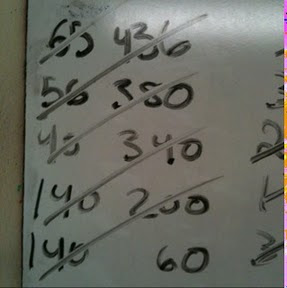 65 436
56 380
40 340
140 200
140 60